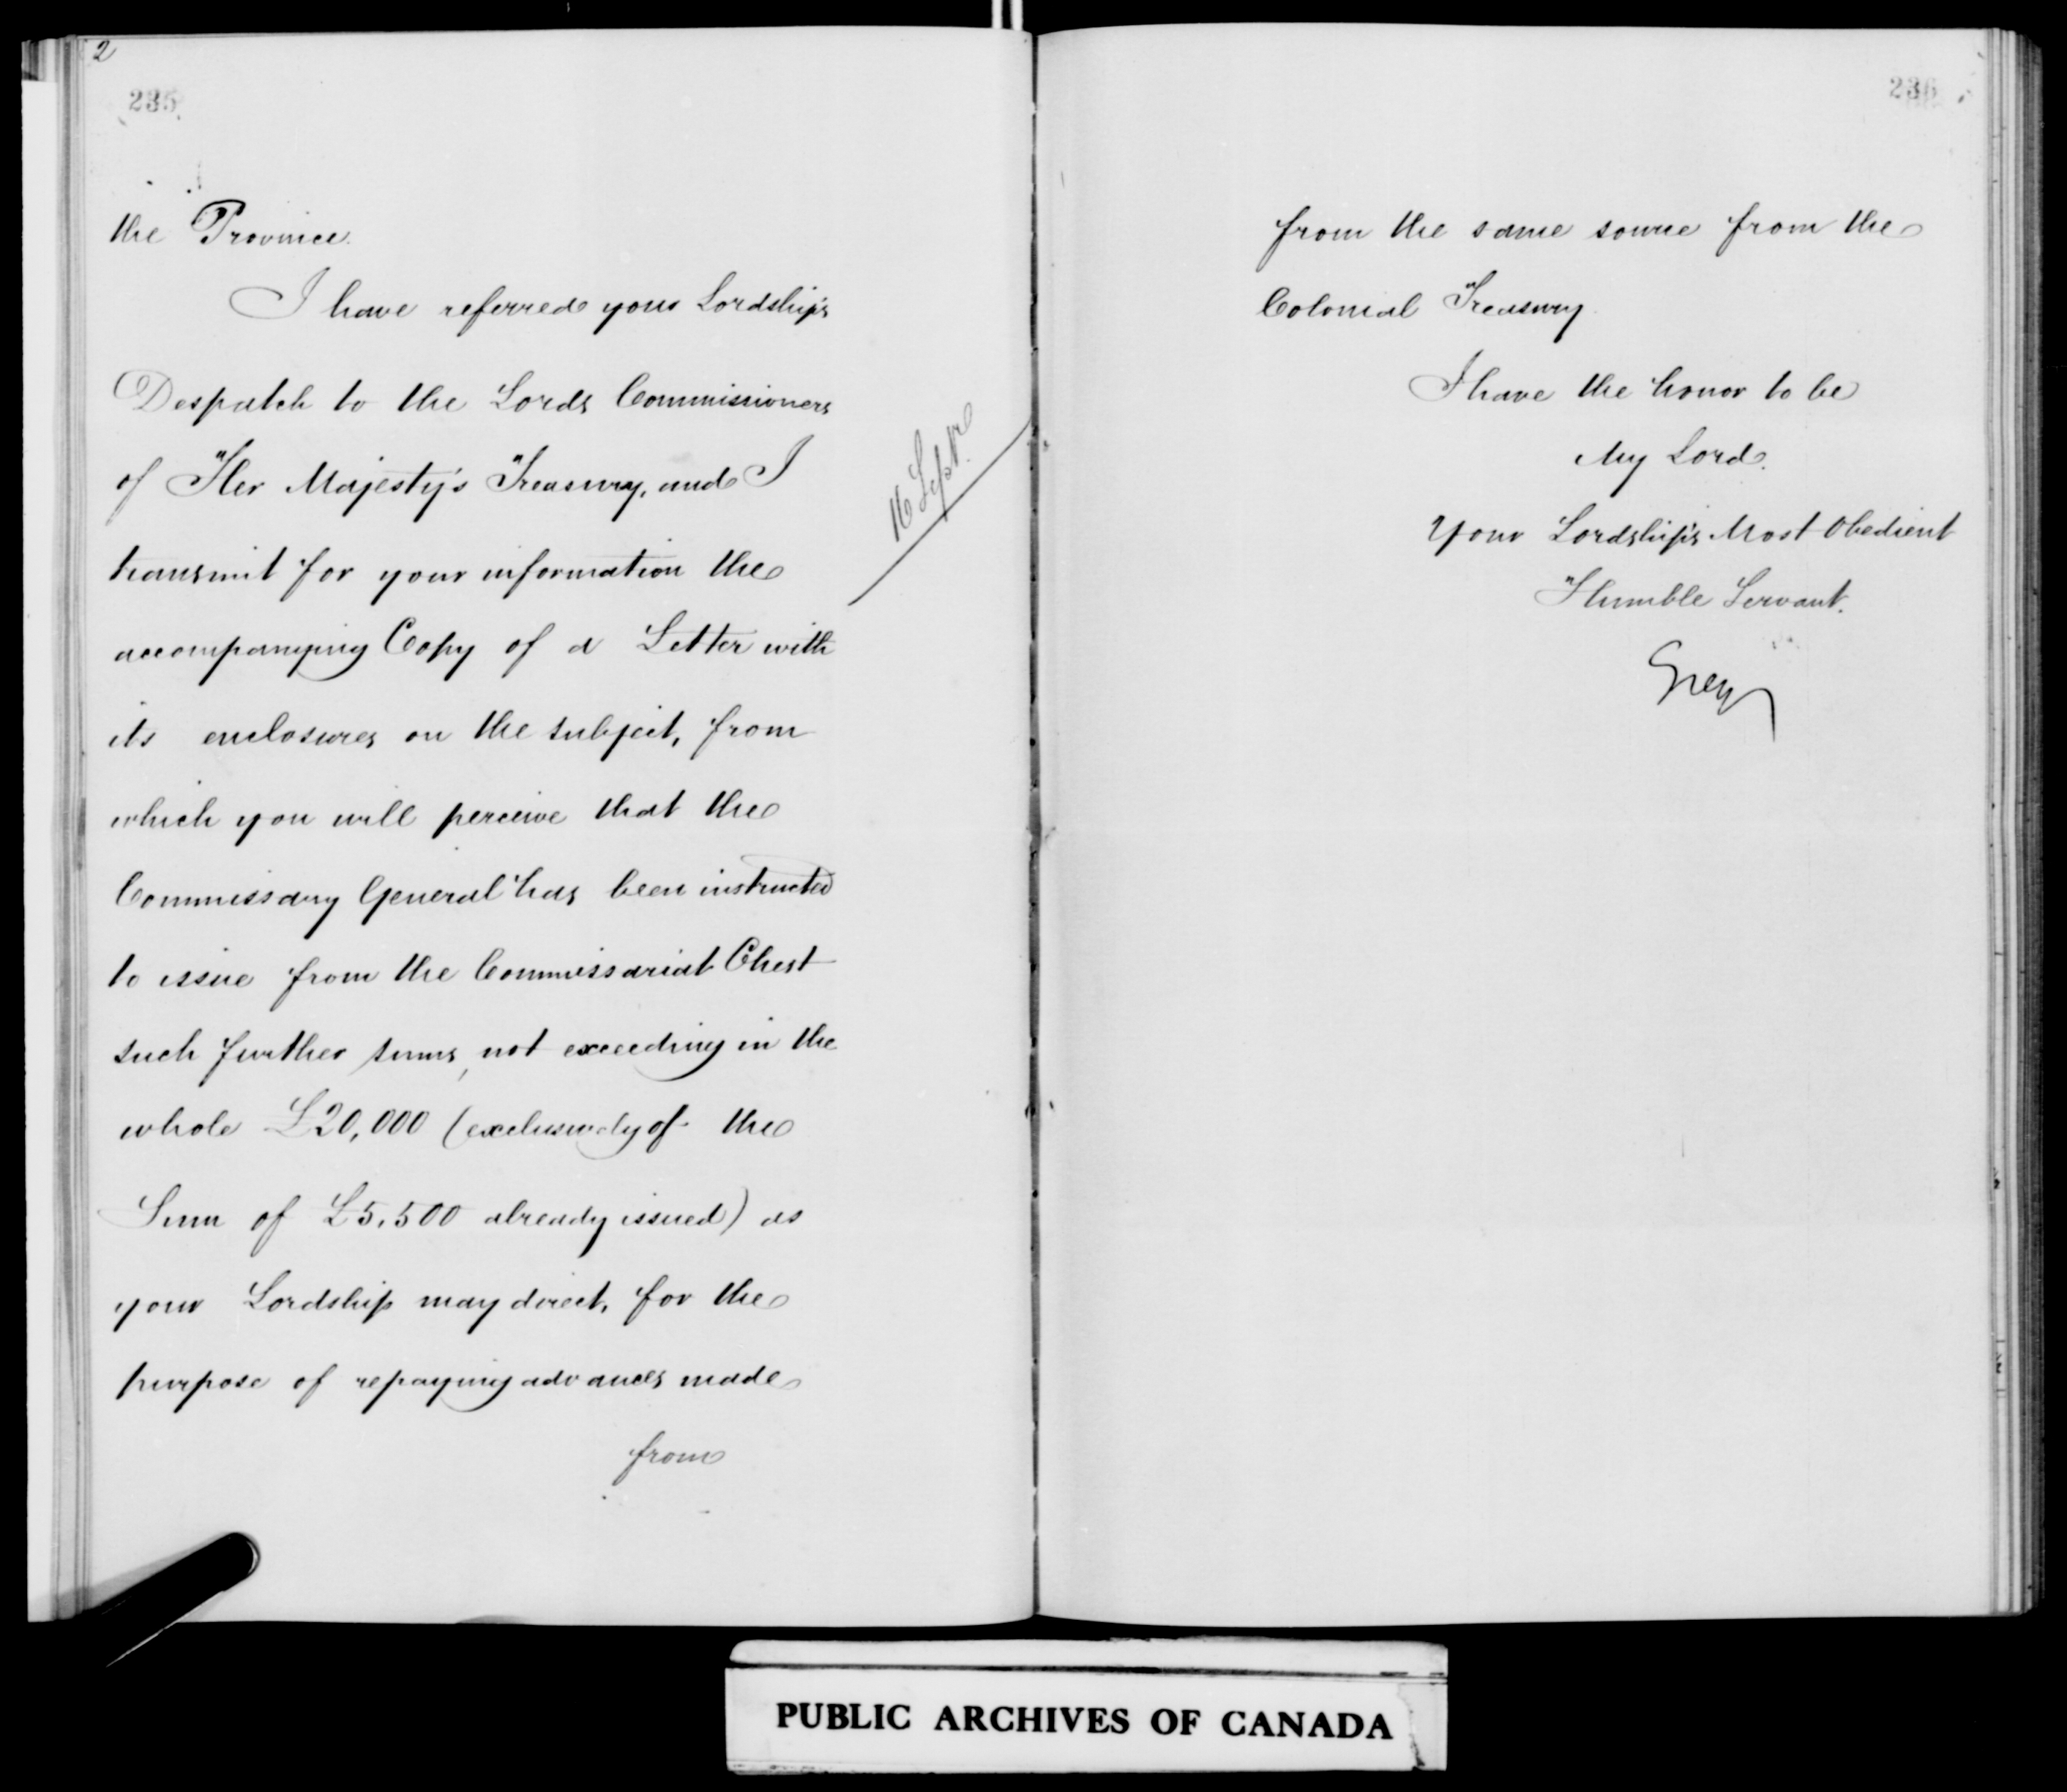 2
235
the Province.
I have referred your Lordship's
Despatch to the Lords Commissioners
of Her Majesty's Treasury, and I
transmit for your information the
accompanying Copy of a Letter with
its enclosures on the subject, from
which you will perceive that the
Commissary General has been instructed
to issue from the Commissariat Chest
such further sums, not exceeding in the
whole £20,000 (exclusively of the
Sum of £5,500 already issued) as
your Lordship may direct, for the
purpose of repaying advances made
from
16 Septr.
236
from the same source from the
Colonial Treasury
I have the honor to be
My Lord.
Your Lordship's Most Obedient
Humble Servant.
Grey
PUBLIC ARCHIVES OF CANADA